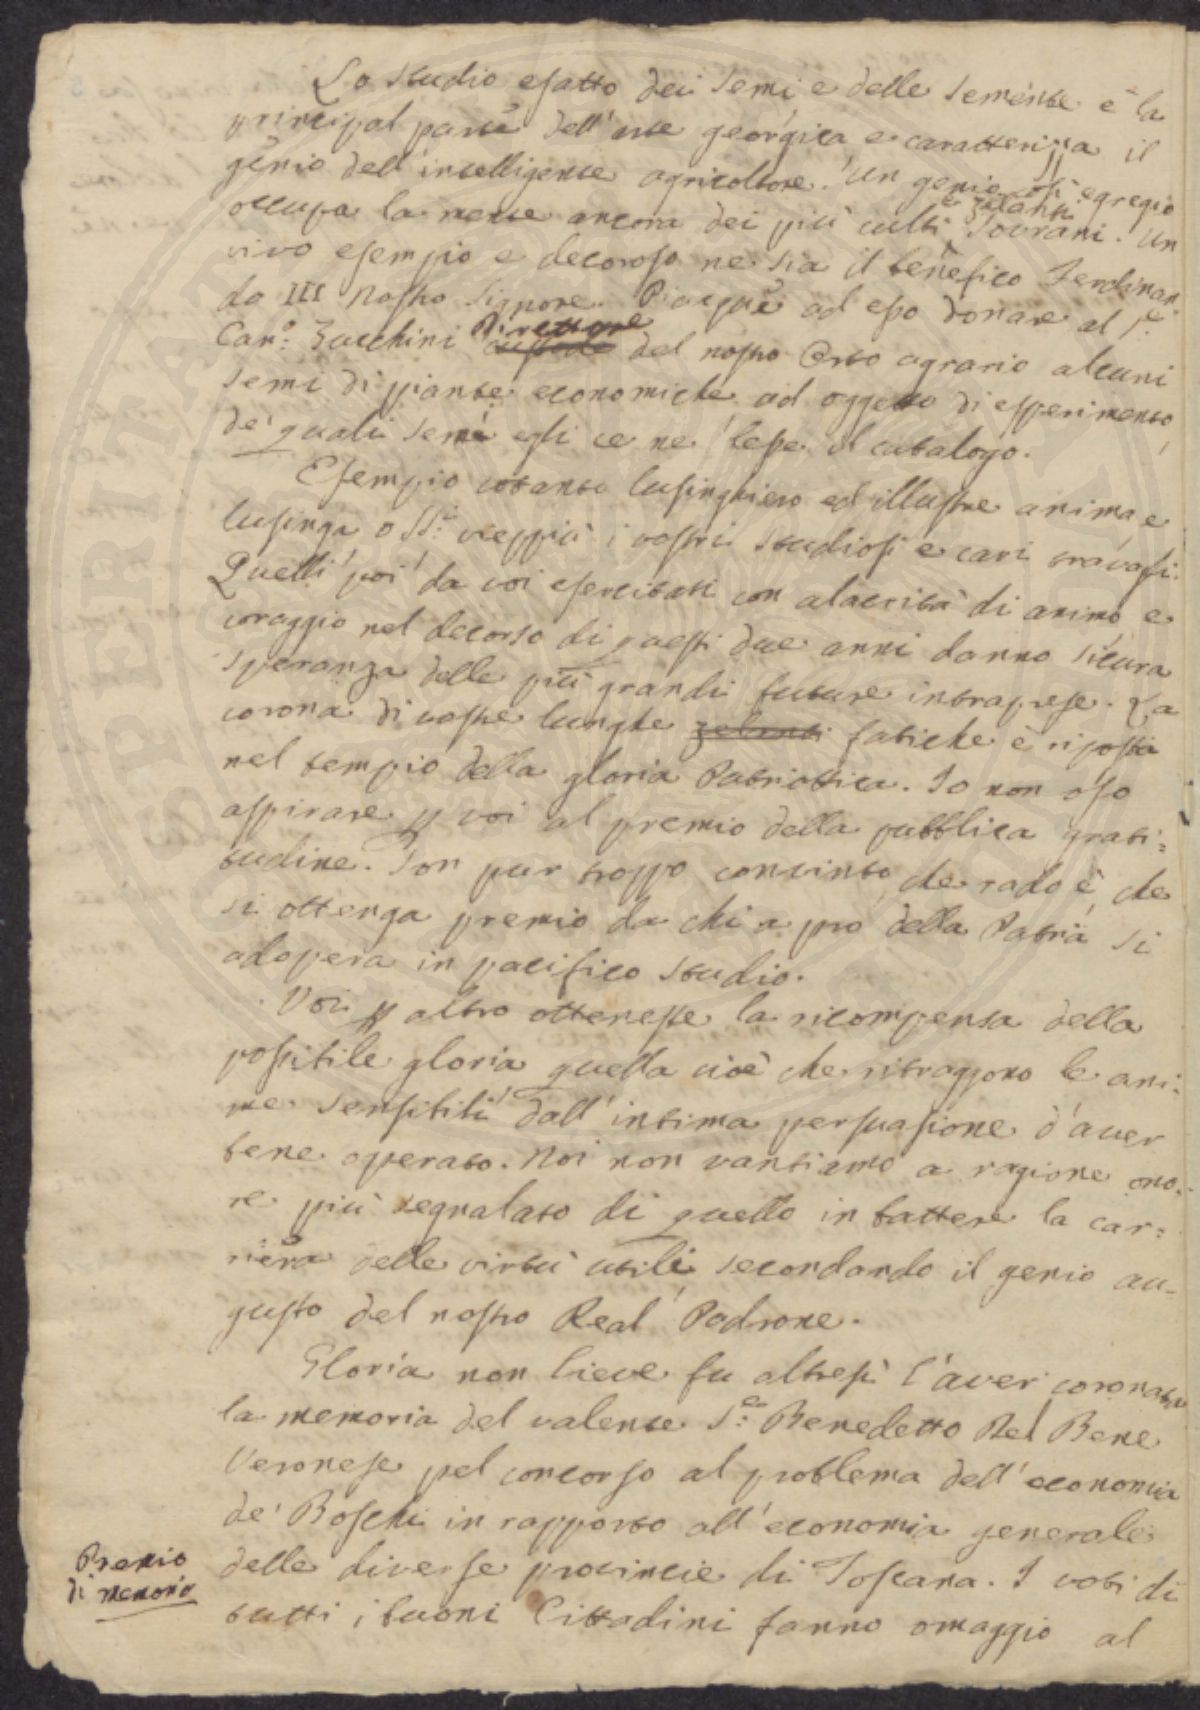 Lo studio esatto dei semi e delle semente è la
principal parte dell'arte georgica e caratterizza il
genio dell'intelligente agricoltore. Un genio così egregio
occupa la mente ancora dei più culti e zelanti Sovrani. Un
vivo esempio e decoroso ne sia il benefico Ferdinan
do III Nostro Signore. Piacque ad esso donare al S.e
Can.o Zucchini Direttore del nostro Orto agrario alcuni
semi di piante economiche ad oggetto di esperimento,
de' quali semi egli ce ne lesse il catalogo.
Esempio cotanto lusinghiero ed illustre anima e
lusinga o SS.i vieppiù i vostri studiosi e cari travagli.
Quelli poi da voi esercitati con alacrità di animo e
coraggio nel decorso di questi due anni danno sicura
speranza delle più grandi future intraprese. La
corona di vostre lunghe zelanti fatiche è riposta
nel tempio della gloria Patriottica. Io non oso
aspirare p voi al premio della pubblica grati:
tudine. Son pur troppo convinto, che rado è, che
si ottenga premio da chi a pro della Patria si
adopera in pacifico studio.
Voi p altro otteneste la ricompensa della
possibile gloria quella cioè che ritraggono le ani:
me sensibili dall'intima persuasione d'aver
bene operato. Noi non vantiamo a ragione ono:
re più segnalato di quello in battere la car:
riera delle virtù utili secondando il genio au-
gusto del nostro Real Padrone.
Gloria non lieve fu altresì l'aver coronata
la memoria del valente S.e Benedetto Del Bene
Veronese pel concorso al problema dell'economia
de' Boschi in rapporto all'economia generale
Premio
di memoria
delle diverse provincie di Toscana. I voti di
tutti i buoni Cittadini fanno omaggio al
SPERITAT